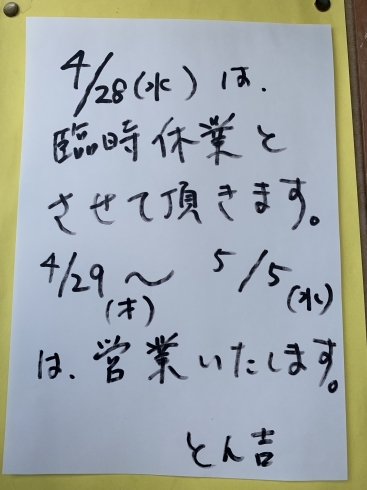 4/28(水)は、
臨時休業と
させて頂きます。
4/29〜 5/5
(木) (水)
は、営業いたします。
とん吉